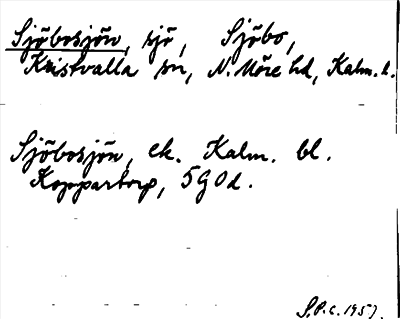 Sjöbosjön, sjö, Sjöbo,
Kristvalla sn, N. Möre hd, Kalm. l.
Sjöbosjön, ek. Kalm. bl.
Koppartorp, 5G0d.
S.P.c. 1957.